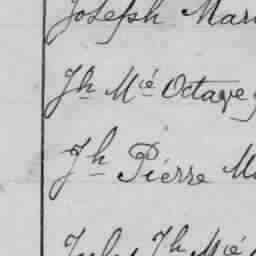 Joseph Mari
Jh Mié Octave
Jh Pierre M
Jules Jh Mié